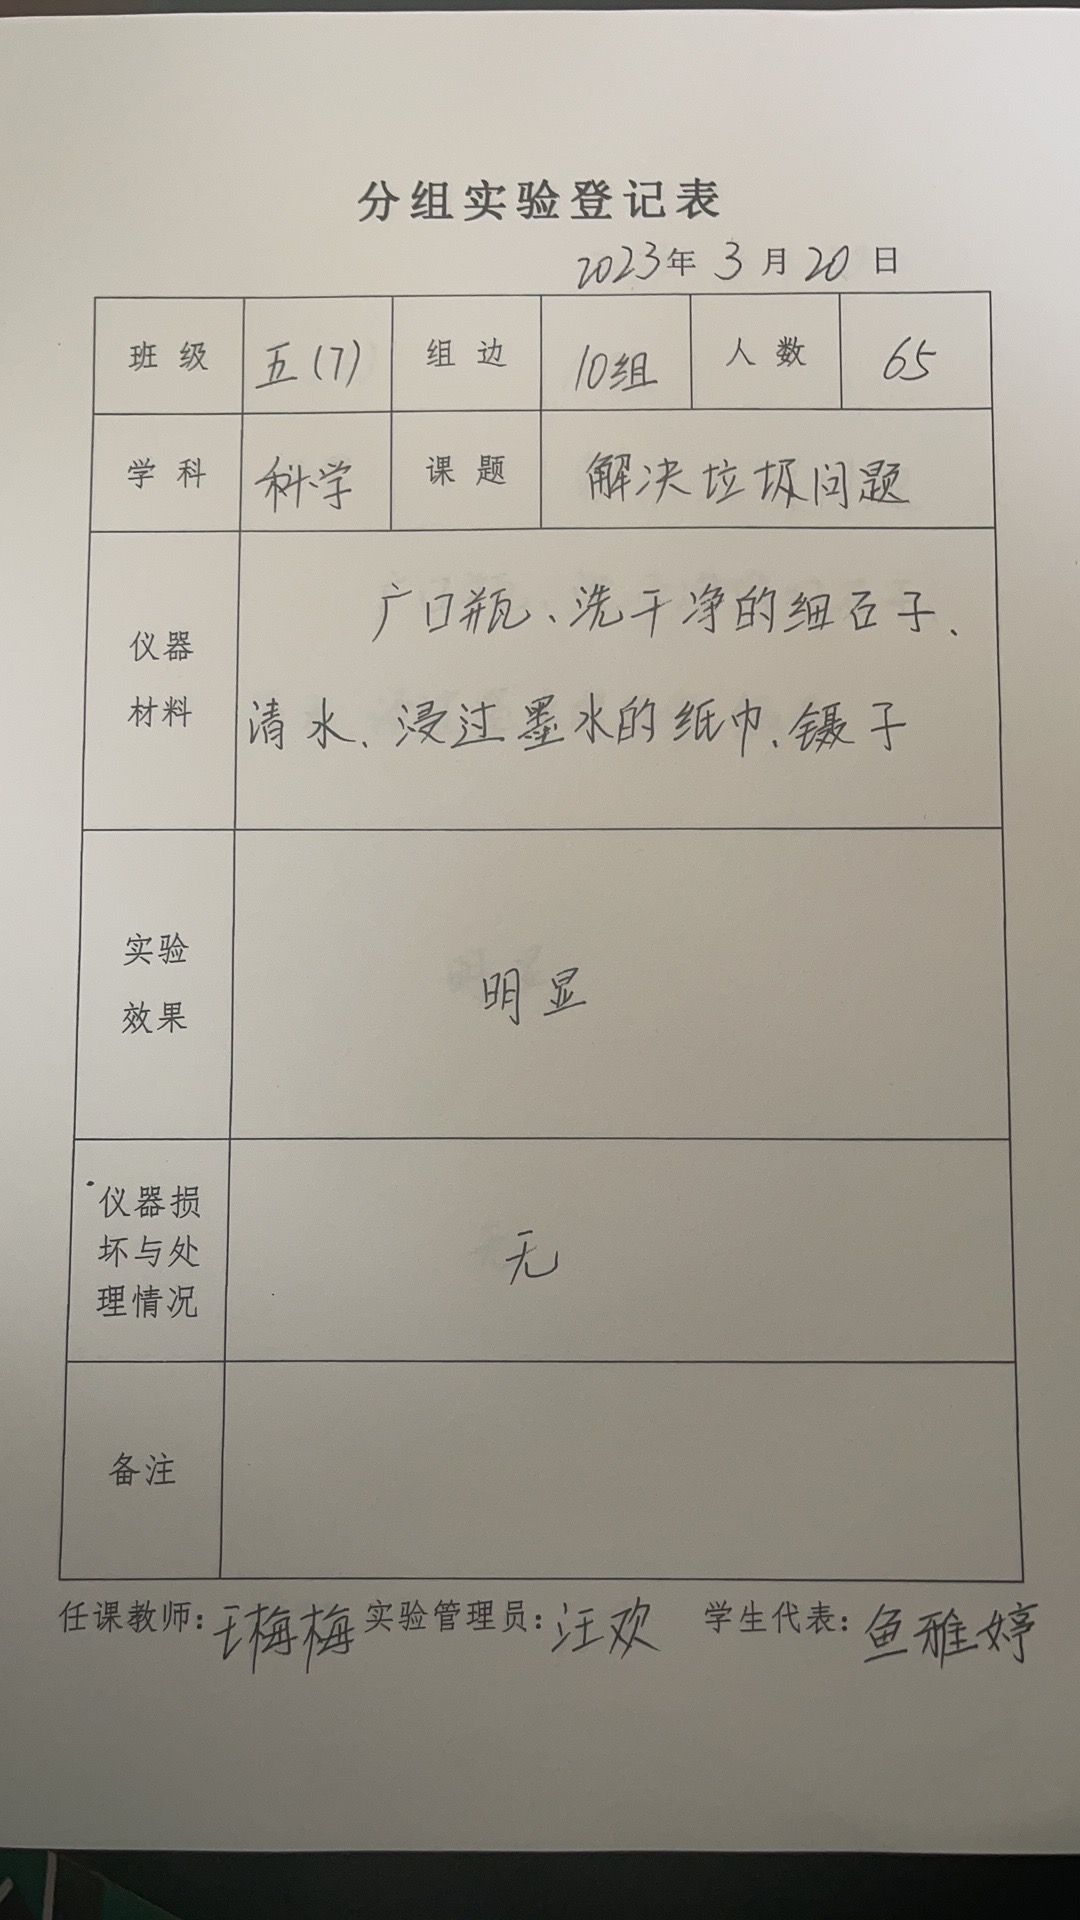 分组实验登记表
2023年 3 月 20 日
班级 五(7) 组边 10组 人数 65
学科 科学 课题 解决垃圾问题
仪器
材料
广口瓶、洗干净的细石子、
清水、浸过墨水的纸巾、镊子
实验
效果
明显
仪器损
坏与处
理情况
无
备注
任课教师:王梅梅 实验管理员:汪欢 学生代表:鱼雅婷